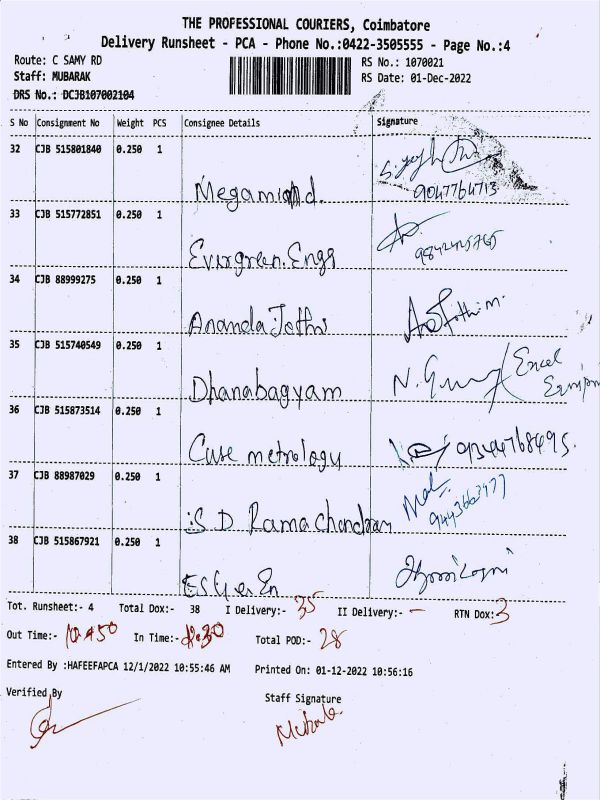 THE PROFESSIONAL COURIERS, Coimbatore
Delivery Runsheet - PCA - Phone No.:0422-3505555 - Page No.:4
Route: C SAMY RD
RS No.: 1070021
Staff: MUBARAK
RS Date: 01-Dec-2022
DRS No.: DCJB107002104
S No Consignment No Weight PCS Consignee Details Signature
32 CJB 515801840 0.250 1
Megamind. 9047764713
33 CJB 515772851 0.250 1
Evergreen.Engg 9842425765
34 CJB 88999275 0.250 1
Ananda Jothi
35 CJB 515740549 0.250 1
Dhanabagyam Excel
36 CJB 515873514 0.250 1
metrology
37 CJB 88987029 0.250 1
S D Rama Chandran
38 CJB 515867921 0.250 1
Tot. Runsheet:- 4 Total Dox:- 38 I Delivery:- 35 II Delivery:- - RTN Dox: 3
Out Time:- In Time:- Total POD:- 28
Entered By :HAFEEFAPCA 12/1/2022 10:55:46 AM Printed On: 01-12-2022 10:56:16
Verified By
Staff Signature